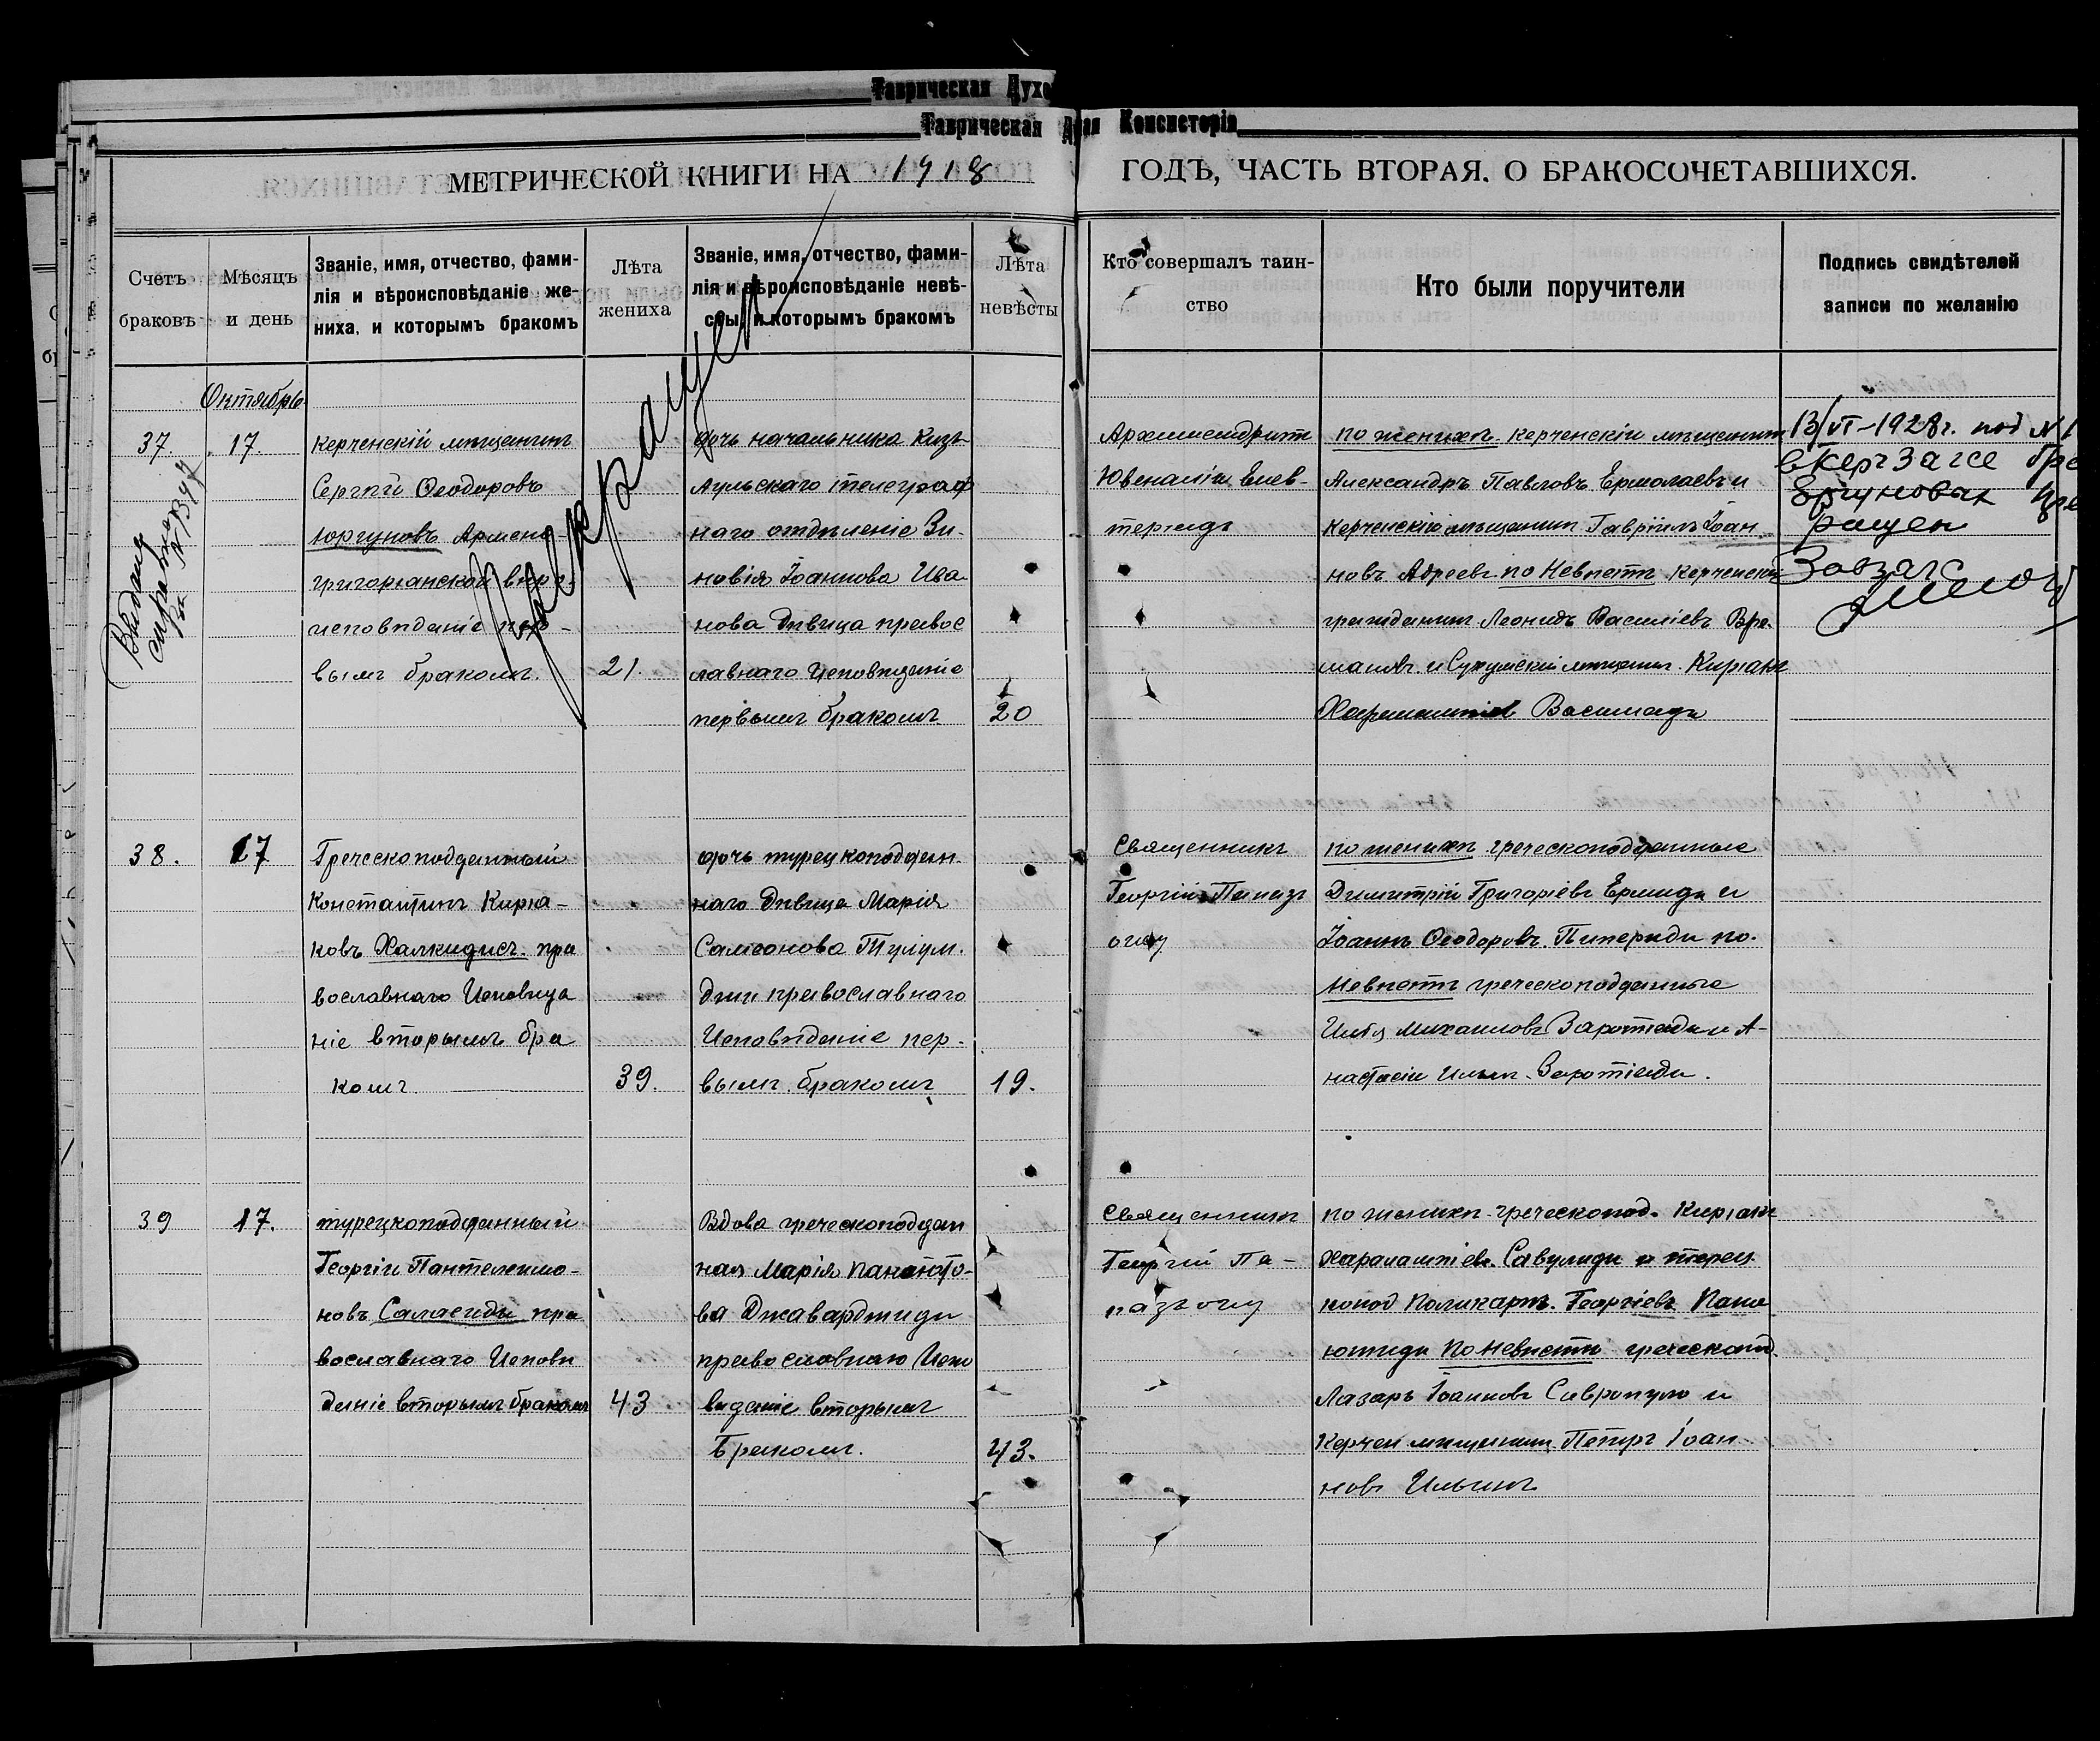 Таврическая Духо
Таврическая Д ая Консисторія
МЕТРИЧЕСКОЙ КНИГИ НА 1918 ГОДЪ, ЧАСТЬ ВТОРАЯ. О БРАКОСОЧЕТАВШИХСЯ.
Счетъ браковъ
Мѣсяцъ и день
Званіе, имя, отчество, фами-
лія и вѣроисповѣданіе же-
ниха, и которымъ бракомъ
Лѣта жениха
Званіе, имя, отчество, фами-
лія и вѣроисповѣданіе невѣ-
сты, и которымъ бракомъ
Лѣта невѣсты
Кто совершалъ таин-
ство
Кто были поручители
Подпись свидѣтелей
записи по желанію
Октябрь
37.
17.
Керченскій мѣщанинъ
Сергѣй Ѳеодоровъ
Юргуновъ Армяно-
григоріанской
исповѣданіе пер-
вымъ бракомъ.
21.
дочь начальника Кизъ-
Аульскаго телеграф
наго отдѣленіе Зи-
новія Іоаннова Ива-
нова дѣвица правос
лавнаго исповѣданіе
первымъ бракомъ
20
Архимандритъ
Ювеналій Елев-
теріадъ
по женихѣ керченскій мѣщанинъ
Александръ Павловъ Ермолаевъ и
керченскій мѣщанинъ Гавріилъ Іоан
новъ Адреевъ по Невѣстѣ керченскій
гражданинъ Леонидъ Василіевъ
и Сухумскій мѣщанинъ Киріакъ
Харлампіев Василиади
13/VI-1928г. под №
в Керч Загсе
рощен
Завзагс
Выдана
справка
38.
17
Греческоподданный
Константинъ Кирка-
ковъ Халкидисъ пра
вославнаго Исповѣда
ніе вторымъ бра
комъ
39.
дочь турецкоподдан-
наго дѣвица Марія
Самсонова Тулум-
джи православнаго
Исповѣданіе пер-
вымъ бракомъ
19.
Священникъ
Георгій Папазъ
оглу
по женихѣ греческоподданные
Димитрій Григоріевъ Ермиди и
Іоаннъ Ѳеодоровъ Пипериди по
Невѣстѣ греческоподданные
Илья Михаиловъ и А-
настасій Ильин
39
17.
турецкоподданный
Георгій Пантелеймо-
новъ Саласиди пра
вославнаго Исповѣ
даніе вторымъ бракомъ
43
Вдова греческоподдан
ная Марія Панаіото-
ва Джаварджиди
православнаго Испо
вѣданіе вторымъ
Бракомъ.
43.
Священникъ
Георгій Па-
пазъ оглу
по женихѣ греческопод. Киріакъ
Харалампіев. Савулиди и турец
копод Поликарпъ Георгіевъ Пана
іотиди по Невѣстѣ греческопод.
Лазарь Іоанновъ Савропуло и
Керчен мѣщанинъ Петръ Іоан-
новъ Ильинъ